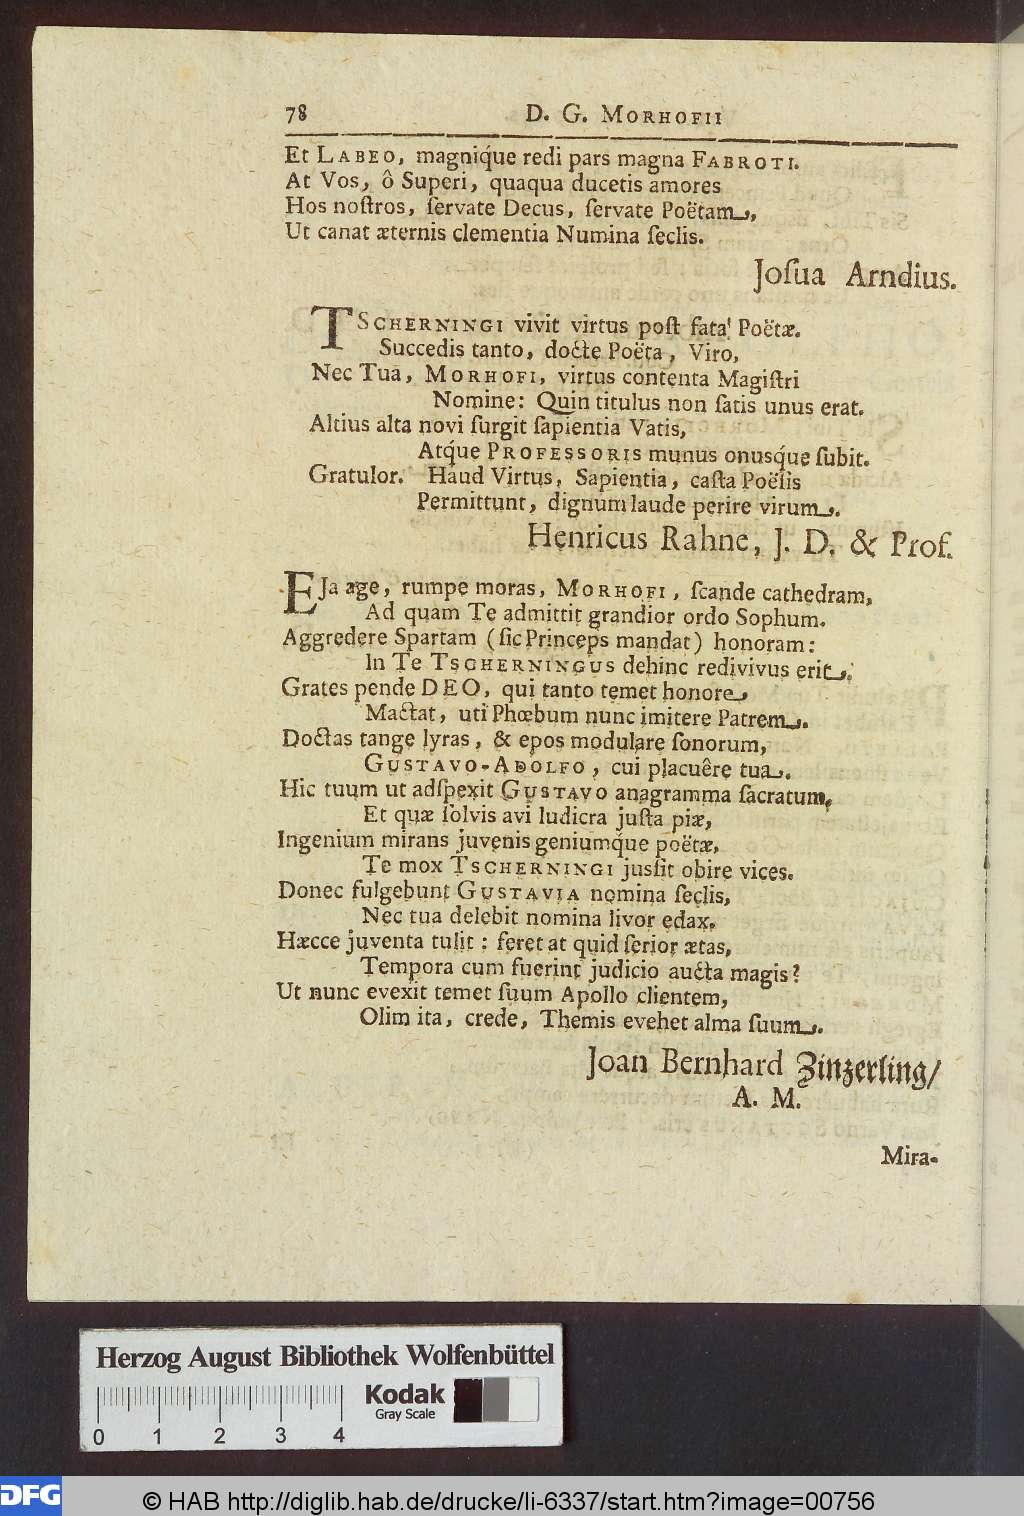 78 D. G. MORHOFII
Et LABEO, magniq́ue redi pars magna FABROTI.
At Vos, ô Superi, quaqua ducetis amores
Hos noſtros, ſervate Decus, ſervate Poëtam,
Ut canat æternis clementia Numina ſeclis.
Joſua Arndius.
TSCHERNINGI vivit virtus poſt fata! Poëtæ.
Succedis tanto, docte Poëta, Viro,
Nec Tua, MORHOFI, virtus contenta Magiſtri
Nomine: Quin titulus non ſatis unus erat.
Altius alta novi ſurgit ſapientia Vatis,
Atq́ue PROFESSORIS munus onusq́ue ſubit.
Gratulor. Haud Virtus, Sapientia, caſta Poëſis
Permittunt, dignum laude perire virum.
Henricus Rahne, J. D. & Prof.
EJa age, rumpe moras, MORHOFI, ſcande cathedram,
Ad quam Te admittit grandior ordo Sophum.
Aggredere Spartam (ſic Princeps mandat) honoram:
In Te TSCHERNINGUS dehinc redivivus erit.
Grates pende DEO, qui tanto temet honore
Mactat, uti Phœbum nunc imitere Patrem.
Doctas tange lyras, & epos modulare ſonorum,
GUSTAVO-ADOLFO, cui placuêre tua.
Hic tuum ut adſpexit GUSTAVO anagramma ſacratum,
Et quæ ſolvis avi ludicra juſta piæ,
Ingenium mirans juvenis geniumq́ue poëtæ,
Te mox TSCHERNINGI jusſit obire vices.
Donec fulgebunt GUSTAVIA nomina ſeclis,
Nec tua delebit nomina livor edax.
Hæcce juventa tulit: feret at quid ſerior ætas,
Tempora cum fuerint judicio aucta magis?
Ut nunc evexit temet ſuum Apollo clientem,
Olim ita, crede, Themis evehet alma ſuum.
Joan Bernhard Zinzerling/
A. M.
Mira-
Herzog August Bibliothek Wolfenbüttel
Kodak
Gray Scale
0 1 2 3 4
DFG
© HAB http://diglib.hab.de/drucke/li-6337/start.htm?image=00756